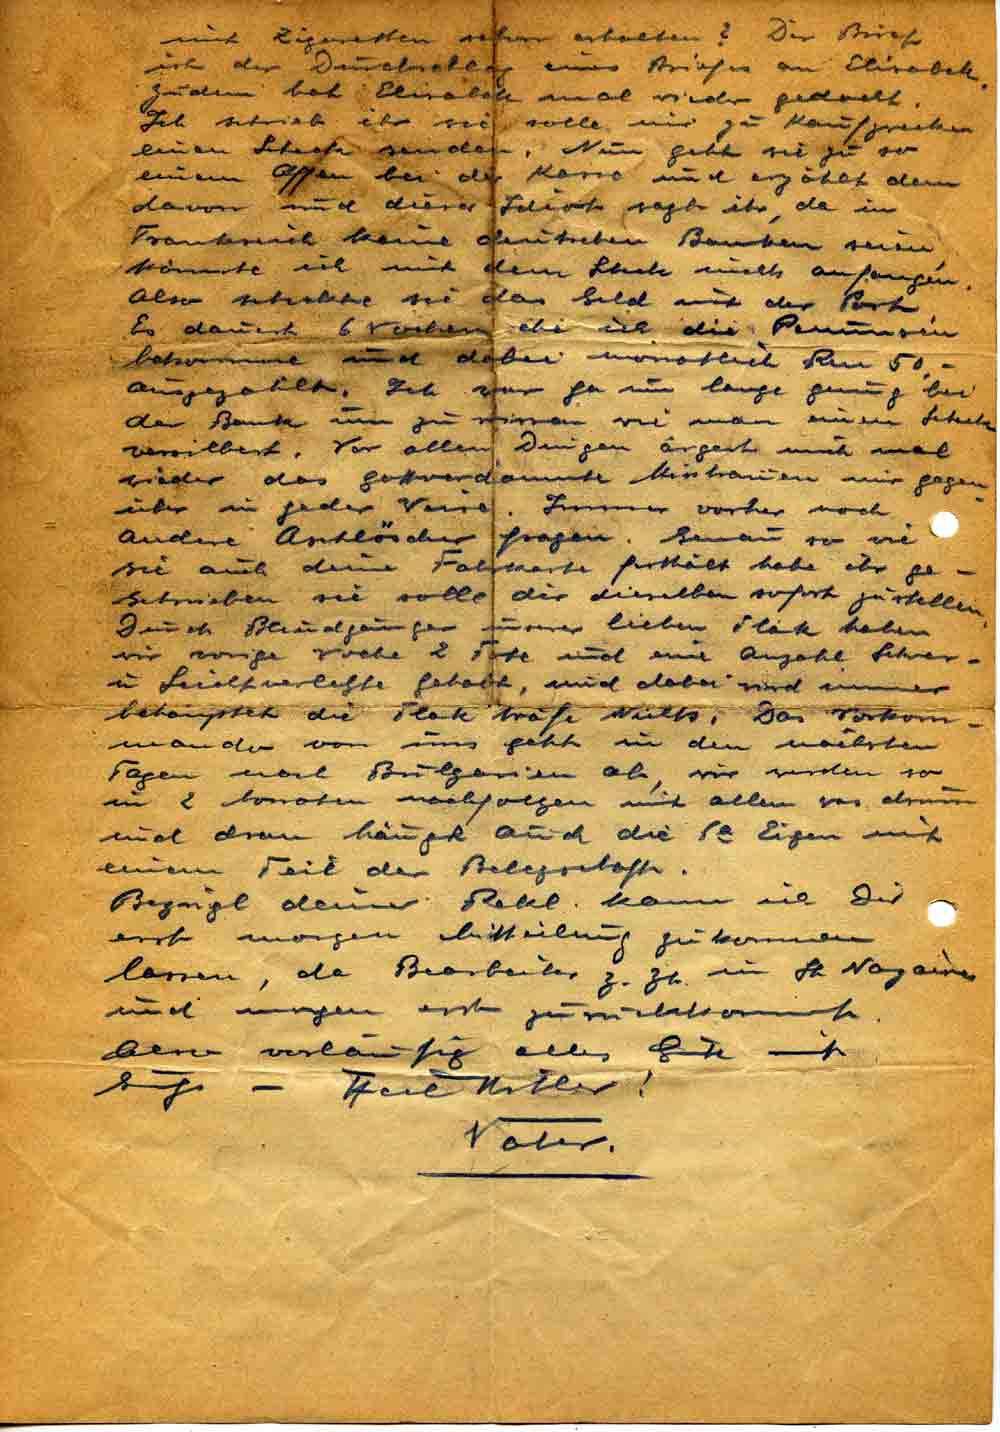 mit Zigaretten schon erhalten? Der Brief
ist der Durchschlag eines Briefes an Elisabeth.
Zudem hat Elisabeth mal wieder gedacht.
Ich schrieb ihr sie solle mir zu Kaufzwecken
einen Scheck senden. Nun geht sie zu so
einem Affen bei der Kasse und erzählt dem
davon und dieser Idiot sagt ihr, da in
Frankreich keine deutschen Banken seien,
könnte ich mit dem Scheck nichts anfangen.
Also schickte sie das Geld mit der Post
Es dauert 6 Wochen ehe ich die Penunsen
bekomme und dabei monatlich Rm 50,-
ausgezahlt. Ich war ja nun lange genug bei
der Bank um zu wissen wie man einen Scheck
versilbert. Vor allen Dingen ärgert mich mal
wieder das gottverdammte Misstrauen mir gegen-
über in jeder Weise. Immer vorher noch
andere Arschlöcher fragen. Genau so wie
sie auch deine Fahrkarte habe ihr ge-
schrieben sie solle dir dieselben sofort zustellen.
Durch Blindgänger unserer lieben Flak haben
wir vorige Woche 2 Tote und eine Anzahl Schwer-
u Leichtverletzte gehabt, und dabei wird immer
behauptet die Flak träfe Nichts. Das Vorkom-
mando von uns geht in den nächsten
Tagen nach Bulgarien ab, wir werden so
in 2 Monaten nachfolgen mit allem was drum
und dran hängt auch die Fa Eigen mit
einem Teil der Belegschaft.
Bezügl deiner Rekl. kann ich Dir
erst morgen Mitteilung zukommen
lassen, da Bearbeiter z. Zt. in St Nazaire
und morgen erst zurückkommt.
Also vorläufig alles Gute mit
Gruß – Heil Hitler!
Vater.